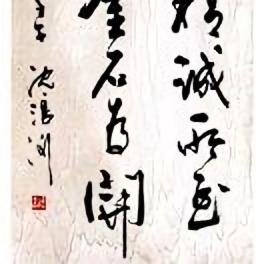 精誠所至
金石為開
沈鴻